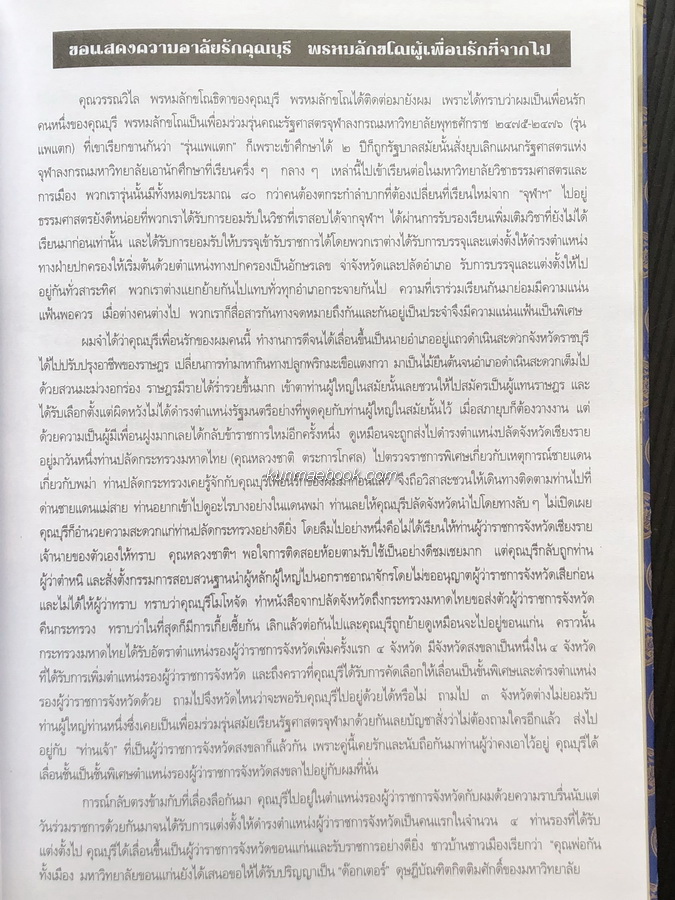 ขอแสดงความอาลัยรักคุณบุรี พรหมลักขโณผู้เพื่อนรักที่จากไป
คุณวรรณวิไล พรหมลักขโณธิดาของคุณบุรี พรหมลักขโณได้ติดต่อมายังผม เพราะได้ทราบว่าผมเป็นเพื่อนรัก
คนหนึ่งของคุณบุรี พรหมลักขโณเป็นเพื่อนร่วมรุ่นคณะรัฐศาสตร์จุฬาลงกรณมหาวิทยาลัยพุทธศักราช ๒๔๗๕-๒๔๗๖ (รุ่น
แพแตก) ที่เขาเรียกขานกันว่า "รุ่นแพแตก" ก็เพราะเข้าศึกษาได้ ๒ ปีก็ถูกรัฐบาลสมัยนั้นสั่งยุบเลิกแผนกรัฐศาสตร์แห่ง
จุฬาลงกรณมหาวิทยาลัยเอานักศึกษาที่เรียนครึ่ง ๆ กลาง ๆ เหล่านี้ไปเข้าเรียนต่อในมหาวิทยาลัยวิชาธรรมศาสตร์และ
การเมือง พวกเรารุ่นนั้นมีทั้งหมดประมาณ ๘๐ กว่าคนต้องตกระกำลำบากที่ต้องเปลี่ยนที่เรียนใหม่จาก "จุฬาฯ" ไปอยู่
ธรรมศาสตร์ยังดีหน่อยที่พวกเราได้รับการยอมรับในวิชาที่เราสอบได้จากจุฬาฯ ได้ผ่านการรับรองเรียนเพิ่มเติมวิชาที่ยังไม่ได้
เรียนมาก่อนเท่านั้น และได้รับการยอมรับให้บรรจุเข้ารับราชการได้โดยพวกเราต่างได้รับการบรรจุและแต่งตั้งให้ดำรงตำแหน่ง
ทางฝ่ายปกครองให้เริ่มต้นด้วยตำแหน่งทางปกครองเป็นอักษรเลข จ่าจังหวัดและปลัดอำเภอ รับการบรรจุและแต่งตั้งให้ไป
อยู่กันทั่วสาระทิศ พวกเราต่างแยกย้ายกันไปแทบทั่วทุกอำเภอกระจายกันไป ความที่เราร่วมเรียนกันมาย่อมมีความแน่น
แฟ้นพอควร เมื่อต่างคนต่างไป พวกเราก็สื่อสารกันทางจดหมายถึงกันและกันอยู่เป็นประจำจึงมีความแน่นแฟ้นเป็นพิเศษ
ผมจำได้ว่าคุณบุรีเพื่อนรักของผมคนนี้ ทำงานการดีจนได้เลื่อนขึ้นเป็นนายอำเภออยู่แถวดำเนินสะดวกจังหวัดราชบุรี
ได้ไปปรับปรุงอาชีพของราษฎร เปลี่ยนการทำมาหากินทางปลูกพริกมะเขือแตงกวา มาเป็นไม้ยืนต้นจนอำเภอดำเนินสะดวกเต็มไป
ด้วยสวนมะม่วงอกร่อง ราษฎรมีรายได้ร่ำรวยขึ้นมาก เข้าตาท่านผู้ใหญ่ในสมัยนั้นเลยชวนให้ไปสมัครเป็นผู้แทนราษฎร และ
ได้รับเลือกตั้งแต่ผิดหวังไม่ได้ดำรงตำแหน่งรัฐมนตรีอย่างที่พูดคุยกับท่านผู้ใหญ่ในสมัยนั้นไว้ เมื่อสภายุบก็ต้องวางงาน แต่
ด้วยความเป็นผู้มีเพื่อนฝูงมากเลยได้กลับเข้าราชการใหม่อีกครั้งหนึ่ง ดูเหมือนจะถูกส่งไปดำรงตำแหน่งปลัดจังหวัดเชียงราย
อยู่มาวันหนึ่งท่านปลัดกระทรวงมหาดไทย (คุณหลวงชาติ ตระการโกศล) ไปตรวจราชการพิเศษเกี่ยวกับเหตุการณ์ชายแดน
เกี่ยวกับพม่า ท่านปลัดกระทรวงเคยรู้จักกับคุณบุรีเพื่อนรักของผมมาก่อนแล้ว จึงถือวิสาสะชวนให้เดินทางติดตามท่านไปที่
ด่านชายแดนแม่สาย ท่านอยากเข้าไปดูอะไรบางอย่างในแดนพม่า ท่านเลยให้คุณบุรีปลัดจังหวัดนำไปโดยทางลับ ๆ ไม่เปิดเผย
คุณบุรีก็อำนวยความสะดวกแก่ท่านปลัดกระทรวงอย่างดียิ่ง โดยลืมไปอย่างหนึ่งคือไม่ได้เรียนให้ท่านผู้ว่าราชการจังหวัดเชียงราย
เจ้านายของตัวเองให้ทราบ คุณหลวงชาติฯ พอใจการติดสอยห้อยตามรับใช้เป็นอย่างดีชมเชยมาก แต่คุณบุรีกลับถูกท่าน
ผู้ว่าตำหนิ และสั่งตั้งกรรมการสอบสวนฐานนำผู้หลักผู้ใหญ่ไปนอกราชอาณาจักรโดยไม่ขออนุญาตผู้ว่าราชการจังหวัดเสียก่อน
และไม่ได้ให้ผู้ว่าทราบ ทราบว่าคุณบุรีโมโหจัด ทำหนังสือจากปลัดจังหวัดถึงกระทรวงมหาดไทยขอส่งตัวผู้ว่าราชการจังหวัด
คืนกระทรวง ทราบว่าในที่สุดก็มีการเกี้ยเซี้ยกัน เลิกแล้วต่อกันไปและคุณบุรีถูกย้ายดูเหมือนจะไปอยู่ขอนแก่น คราวนั้น
กระทรวงมหาดไทยได้รับอัตราตำแหน่งรองผู้ว่าราชการจังหวัดเพิ่มครั้งแรก ๔ จังหวัด มีจังหวัดสงขลาเป็นหนึ่งใน ๔ จังหวัด
ที่ได้รับการเพิ่มตำแหน่งรองผู้ว่าราชการจังหวัด และถึงคราวที่คุณบุรีได้รับการคัดเลือกให้เลื่อนเป็นชั้นพิเศษและดำรงตำแหน่ง
รองผู้ว่าราชการจังหวัดด้วย ถามไปจังหวัดไหนว่าจะพอรับคุณบุรีไปอยู่ด้วยได้หรือไม่ ถามไป ๓ จังหวัดต่างไม่ยอมรับ
ท่านผู้ใหญ่ท่านหนึ่งซึ่งเคยเป็นเพื่อนร่วมรุ่นสมัยเรียนรัฐศาสตร์จุฬามาด้วยกันเลยบัญชาสั่งว่าไม่ต้องถามใครอีกแล้ว ส่งไป
อยู่กับ "ท่านเจ้า" ที่เป็นผู้ว่าราชการจังหวัดสงขลาก็แล้วกัน เพราะคู่นี้เคยรักและนับถือกันมาท่านผู้ว่าคงเอาไว้อยู่ คุณบุรีได้
เลื่อนชั้นเป็นชั้นพิเศษตำแหน่งรองผู้ว่าราชการจังหวัดสงขลาไปอยู่กับผมที่นั่น
การณ์กลับตรงข้ามกับที่เลื่องลือกันมา คุณบุรีไปอยู่ในตำแหน่งรองผู้ว่าราชการจังหวัดกับผมด้วยความราบรื่นนับแต่
วันร่วมราชการด้วยกันมาจนได้รับการแต่งตั้งให้ดำรงตำแหน่งผู้ว่าราชการจังหวัดเป็นคนแรกในจำนวน ๔ ท่านรองที่ได้รับ
แต่งตั้งไป คุณบุรีได้เลื่อนขึ้นเป็นผู้ว่าราชการจังหวัดขอนแก่นและรับราชการอย่างดียิ่ง ชาวบ้านชาวเมืองเรียกว่า "คุณพ่อกัน
ทั้งเมือง มหาวิทยาลัยขอนแก่นยังได้เสนอขอให้ได้รับปริญญาเป็น "ด๊อกเตอร์" ดุษฎีบัณฑิตกิตติมศักดิ์ของมหาวิทยาลัย
kunmaebook.com